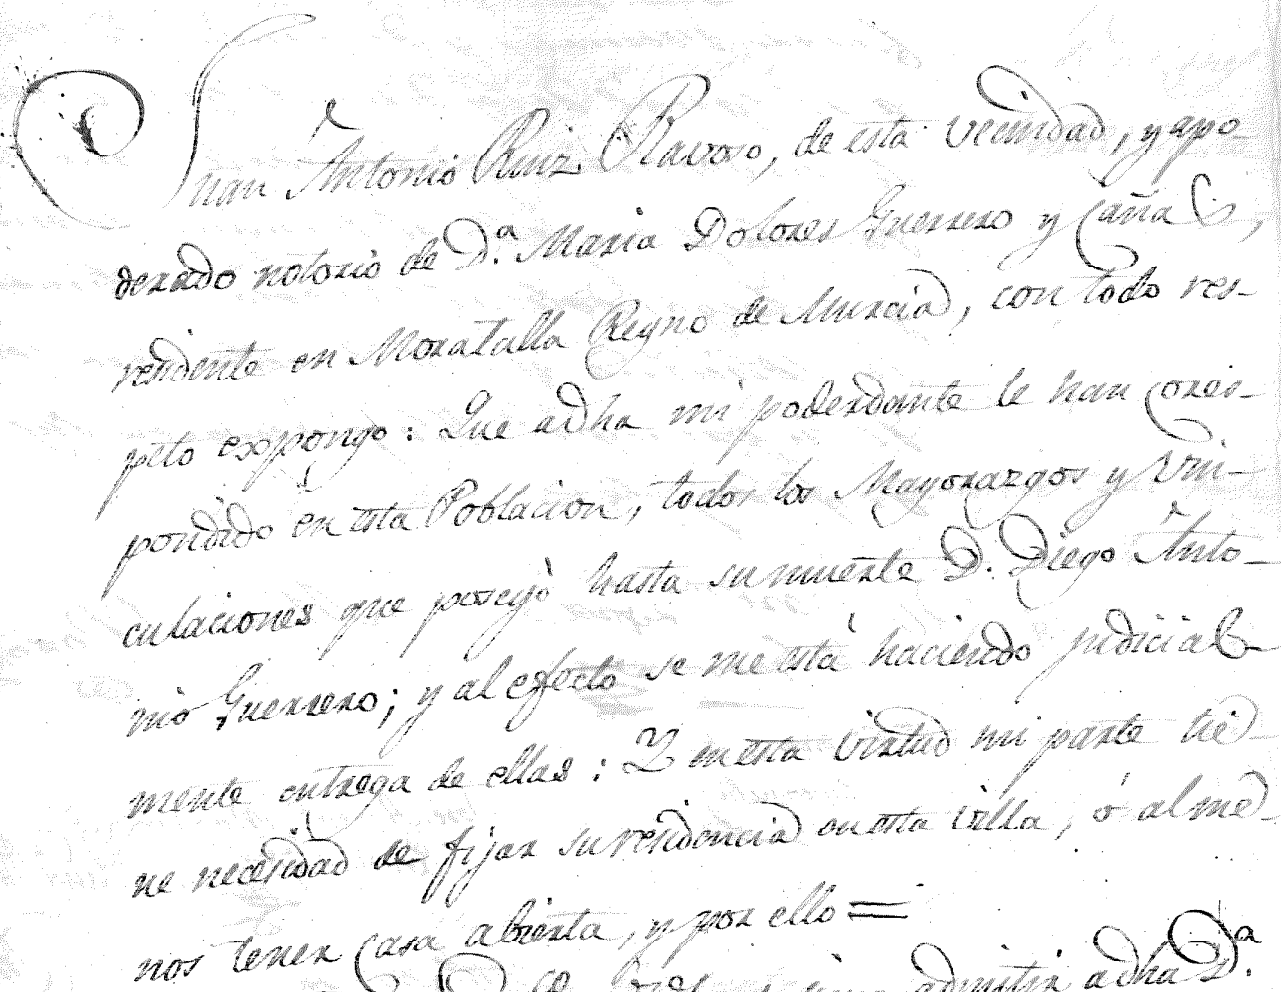 Juan Antonio Ruiz Ravoso, de esta vecindad, y apo-
derado notorio de D.ª Maria Dolores Guerrero y Cañas,
residente en Moratalla Reyno de Murcia, con todo res-
peto expongo: Que adha mi poderdante le han corres-
pondido en esta Poblacion, todos los Mayorazgos y Vin-
culaciones que poseyó hasta su muerte D. Diego Anto-
nio Guerrero; y al efecto se me está haciendo judicial-
mente entrega de ellas: Y en esta virtud mi parte tie-
ne necesidad de fijar su residencia en esta villa, ó al me-
nos tener casa abierta, y por ello =
admitir adha D.ª